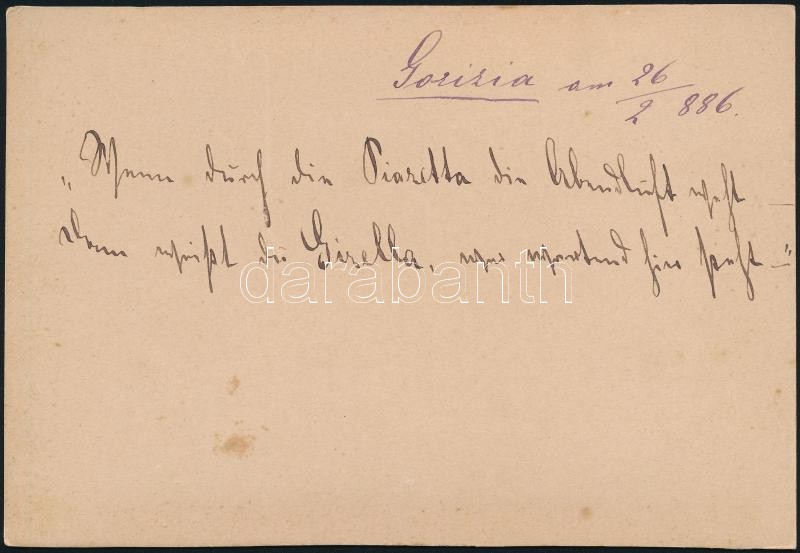 Gorizia am 26/2 886.
„Wenn durch die Piazetta die Abendluft weht —
Dann weißt du Gizella, wer wartend hier steht —"
darabanth